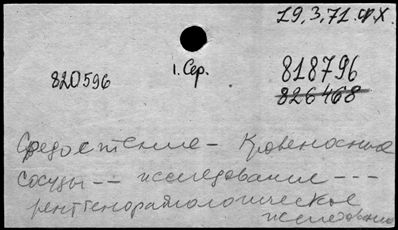 19.3.71.ф.х.
1. Сер.
820596
818796
826468
Средостение - Кровеносные
сосуды -- исследование ---
рентгенорадиологическое
исследование